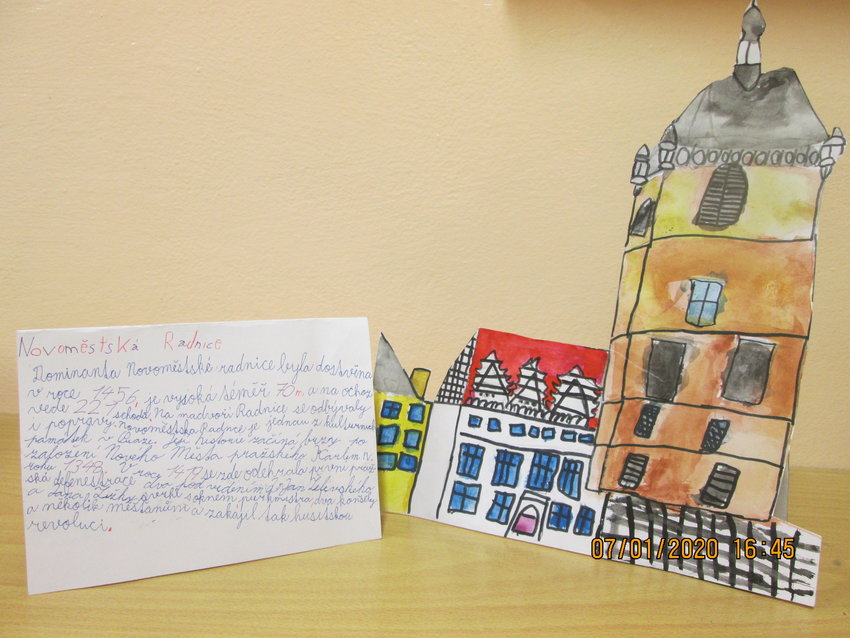 Novoměstská Radnice
Dominanta Novoměstské radnice byla dostvěna
v roce 1456, je vysoká séměř 70 m a na ochoz
vede 221 schodů. Na nádvoří Radnice se odbývaly
i popravy. Novoměstská Radnice je jednou z kulturních
památek v Její historie začíná brzy po
založení Nového Města pražského Karlem IV.
roku 1348. V roce 1419 se zde odehrála první praž-
ská defenestrace dva pod vedením Jan Želivského
a davu z konšely
a několik měšťanů a zahájil tak husitskou
revoluci.
07/01/2020 16:45